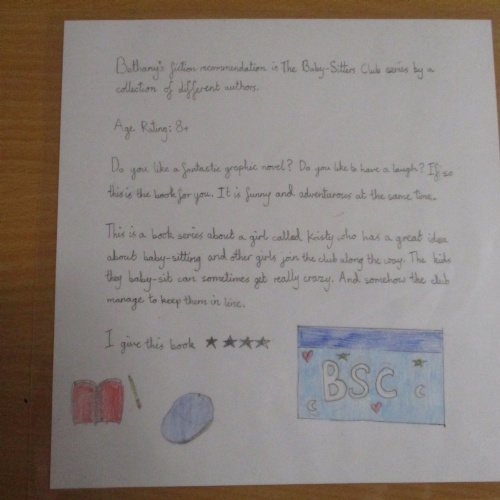 Bethany's fiction recommendation is The Baby-Sitters Club series by a
collection of different authors.
Age Rating: 8+
Do you like a fantastic graphic novel? Do you like to have a laugh? If so
this is the book for you. It is funny and adventurous at the same time.
This is a book series about a girl called Kristy who has a great idea
about baby-sitting and other girls join the club along the way. The kids
they baby-sit can sometimes get really crazy. And somehow the club
manage to keep them in line.
I give this book ★★★★
BSC